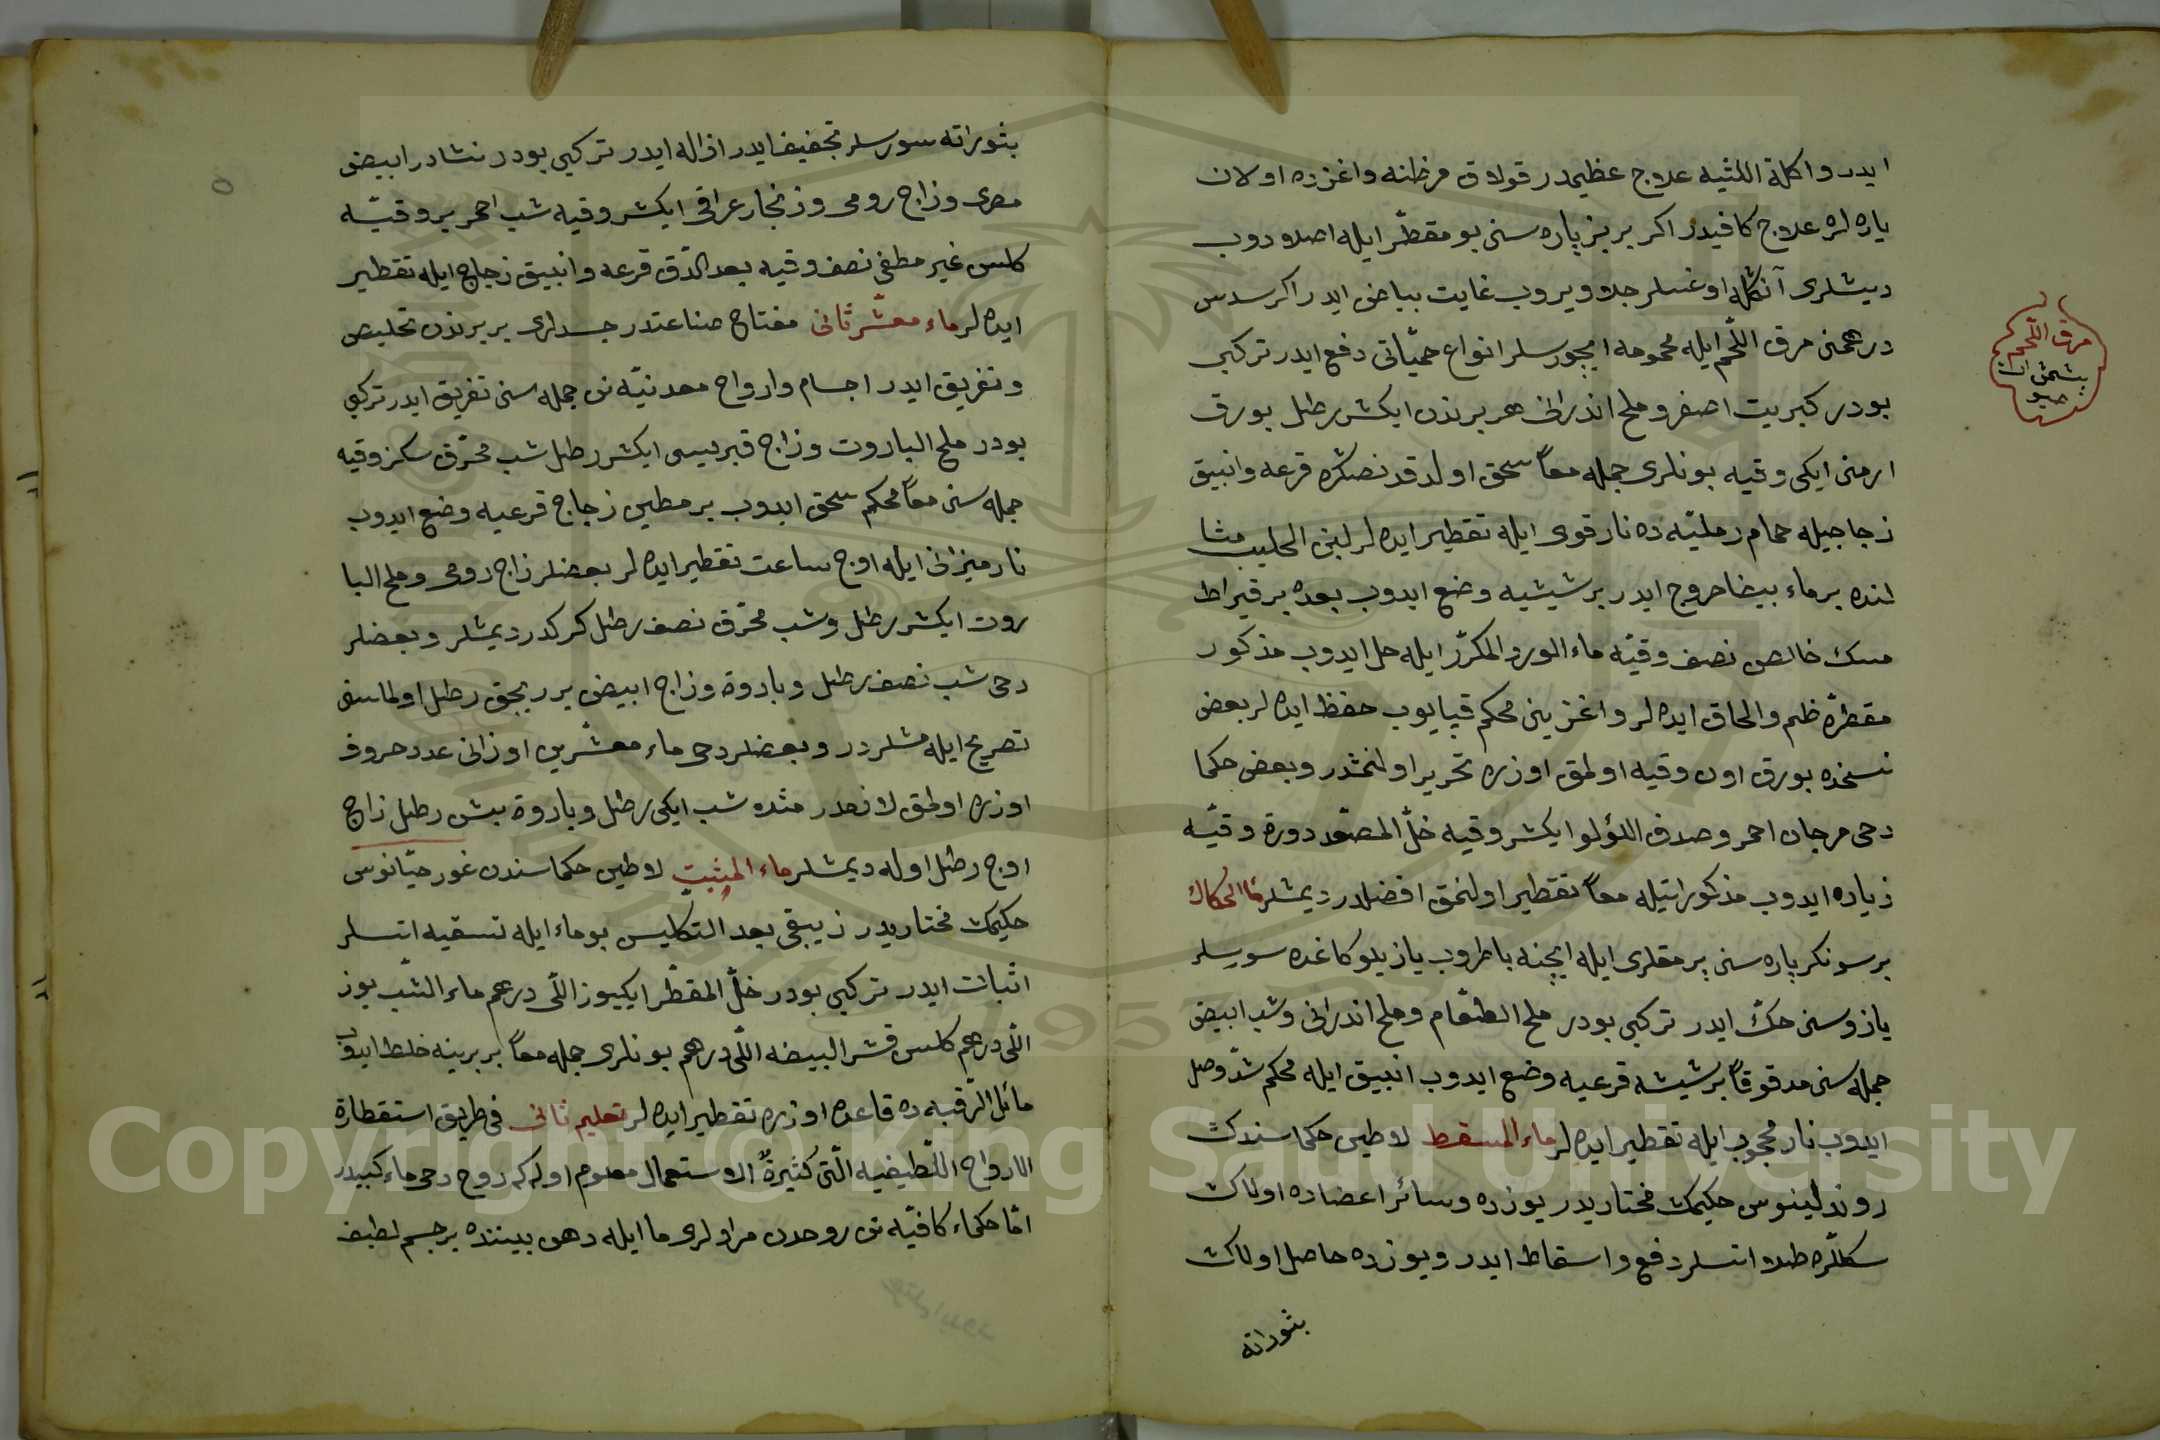 ايدر واكلة اللثيه علاج عظيمدر قولاق مرظنه واغزده اولان
ياره لره علاج كافيدر اكر بر بز پاره سنى بو مقطّر ايله اصلادوب
ديشلرى آنكله اوغسلر جلا ويروب غايت بياض ايدر اكر سدس
درهمنى مرق اللّحم ايله محمومه ايچورسلر انواع حميّاتى دفع ايدر تركيبى
بودر كبريت اصفر وملح اندرانى هر برندن ايكشر رطل بورق
ارمنى ايكى وقيه بونلرى جمله معاً سحق اولدقدنصكره قرعه وانبيق
زجاجيله حمام رمليّه ده نار قوى ايله تقطير ايده لر لبن الحليب مثا
لنده بر ماء بيضا خروج ايدر بر شيشيه وضع ايدوب بعده بر قيراط
مسك خالص نصف وقيّه ماء الورد المكرّر ايله حل ايدوب مذكور
مقطره ضم والحاق ايده لر واغزينى محكم قپايوب حفظ ايده لر بعض
نسخده بورق اون وقيه اولمق اوزره تحرير اولنمشدر وبعض حكما
دحى مرجان احمر وصدف اللؤلو ايكشر وقيه خلّ المصعّد دورة وقيّه
زياده ايدوب مذكوراتيله معاً تقطير اولنمق افضلدر ديمشلر ماء الحكاك
بر سونكر پاره سنى بر مقلرى ايله ايچنه باطروب يازيلو كاغده سورسلر
يازوسنى حكّ ايدر تركيبى بودر ملح الطّعام وملح اندرانى وشب ابيض
جمله سنى مدقوقاً بر شيشه قرعيه وضع ايدوب انبيق ايله محكم شدّ وصل
ايدوب نار محجوب ايله تقطير ايده لر ماء المسقط لاطين حكماسندك
روندلينوس حكيمك مختاريدر يوزده وسائر اعضاده اولان
سكللره طلا اتسلر دفع واسقاط ايدر ويوزده حاصل اولان
بثوراته
مرق اللّحم
بشمش ات
صيو
بثوراته سورسلر تجفيف ايدر ازاله ايدر تركيبى بودر نشادر ابيض
مصرى وزاج رومى وزنجار عراقى ايكشر وقيه شب احمر بر وقيّه
كلس غير مطفى نصف وقيه بعد الدّق قرعه وانبيق زجاج ايله تقطير
ايده لر ماء معشّر ثانى مفتاح صناعتدر جسدلرى بر برندن تخليص
وتفريق ايدر اجسام وارواح معدنيّه نى جمله سنى تفريق ايدر تركيبى
بودر ملح الباروت وزاج قبريسى ايكشر رطل شب محرّق سكز وقيه
جمله سنى معاً محكم سحق ايدوب بر مطين زجاج قرعيه وضع ايدوب
نار ميزانى ايله اوج ساعت تقطير ايده لر بعضلر زاج رومى وملح البا
روت ايكشر رطل وشب محرّق نصف رطل كركدر ديمشلر وبعضلر
دحى شب نصف رطل وباروة وزاج ابيض بر ربجق رطل اولماسنى
تصريح ايله مشلردر وبعضلر دحى ماء معشّرين اوزانى عدد حروف
اوزره اولمق لازمدر مثده شب ايكى رطل وباروة بيش رطل زاج
اوج رطل اوله ديمشلر ماء المثبت لاطين حكماسندن غورحيّانوس
حكيمك مختاريدر زيبقى بعد التكليس بو ماء ايله تسقيه اتسلر
اثبات ايدر تركيبى بودر خلّ المقطّر ايكيوز اللّى درهم ماء الشّب يوز
اللّى درهم كلس قشر البيضه اللّى درهم بونلرى جمله معاً بر برينه خلط ايدوب
مائل الرّقبه ده قاعده اوزره تقطير ايده لر تعليم ثانى فى طريق استقطارة
الارواح اللّطيفيه الّتى كثيرةٌ الاستعمال معلوم اوله كه روح دحى ماء كبيدر
امّا حكماء كافيّه نى روحدن مرادلرى ما ايله دهن بيننده بر جسم لطيف